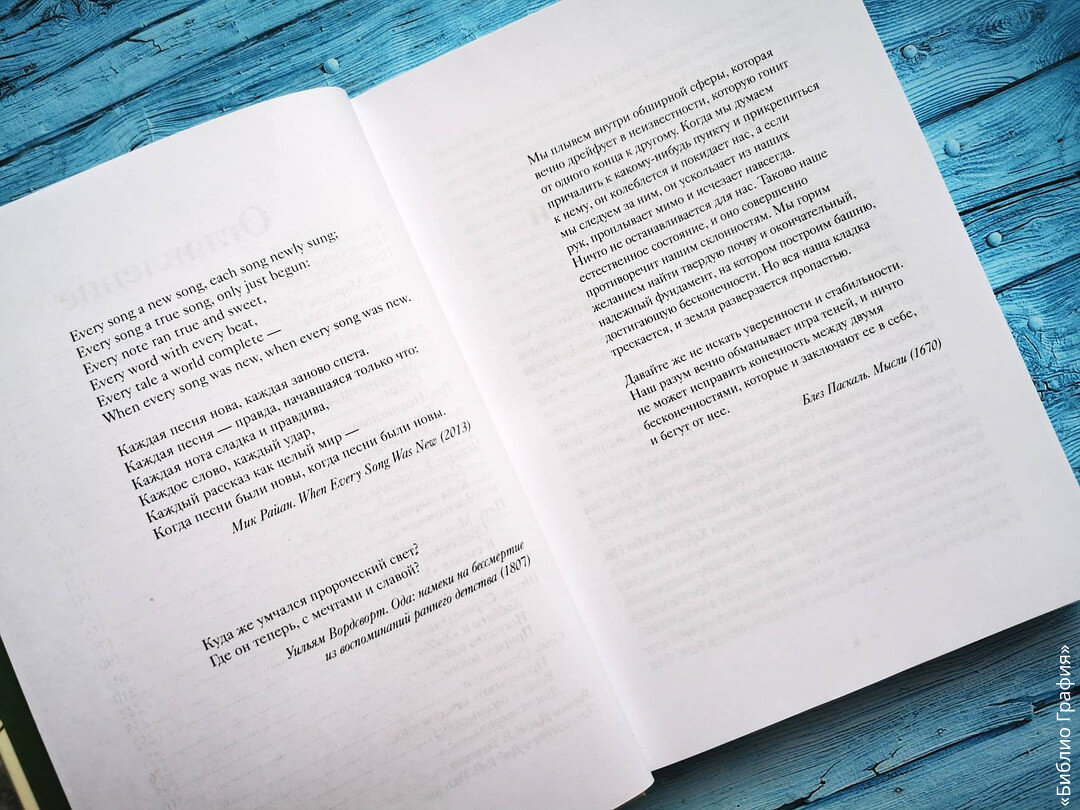 Every song a new song, each song newly sung;
Every song a true song, only just begun:
Every note ran true and sweet,
Every word with every beat,
Every tale a world complete —
When every song was new, when every song was new.
Каждая песня нова, каждая заново спета.
Каждая песня — правда, начавшаяся только что:
Каждая нота сладка и правдива,
Каждое слово, каждый удар,
Каждый рассказ как целый мир —
Когда песни были новы, когда песни были новы.
Мик Райан. When Every Song Was New (2013)
Куда же умчался пророческий свет?
Где он теперь, с мечтами и славой?
Уильям Вордсворт. Ода: намеки на бессмертие
из воспоминаний раннего детства (1807)
Мы плывем внутри обширной сферы, которая
вечно дрейфует в неизвестности, которую гонит
от одного конца к другому. Когда мы думаем
причалить к какому-нибудь пункту и прикрепиться
к нему, он колеблется и покидает нас, а если
мы следуем за ним, он ускользает из наших
рук, проплывает мимо и исчезает навсегда.
Ничто не останавливается для нас. Таково наше
естественное состояние, и оно совершенно
противоречит нашим склонностям. Мы горим
желанием найти твердую почву и окончательный,
надежный фундамент, на котором построим башню,
достигающую бесконечности. Но вся наша кладка
трескается, и земля разверзается пропастью.
Давайте же не искать уверенности и стабильности.
Наш разум вечно обманывает игра теней, и ничто
не может исправить конечность между двумя
бесконечностями, которые и заключают ее в себе,
и бегут от нее.
Блез Паскаль. Мысли (1670)
«Библио Графия»